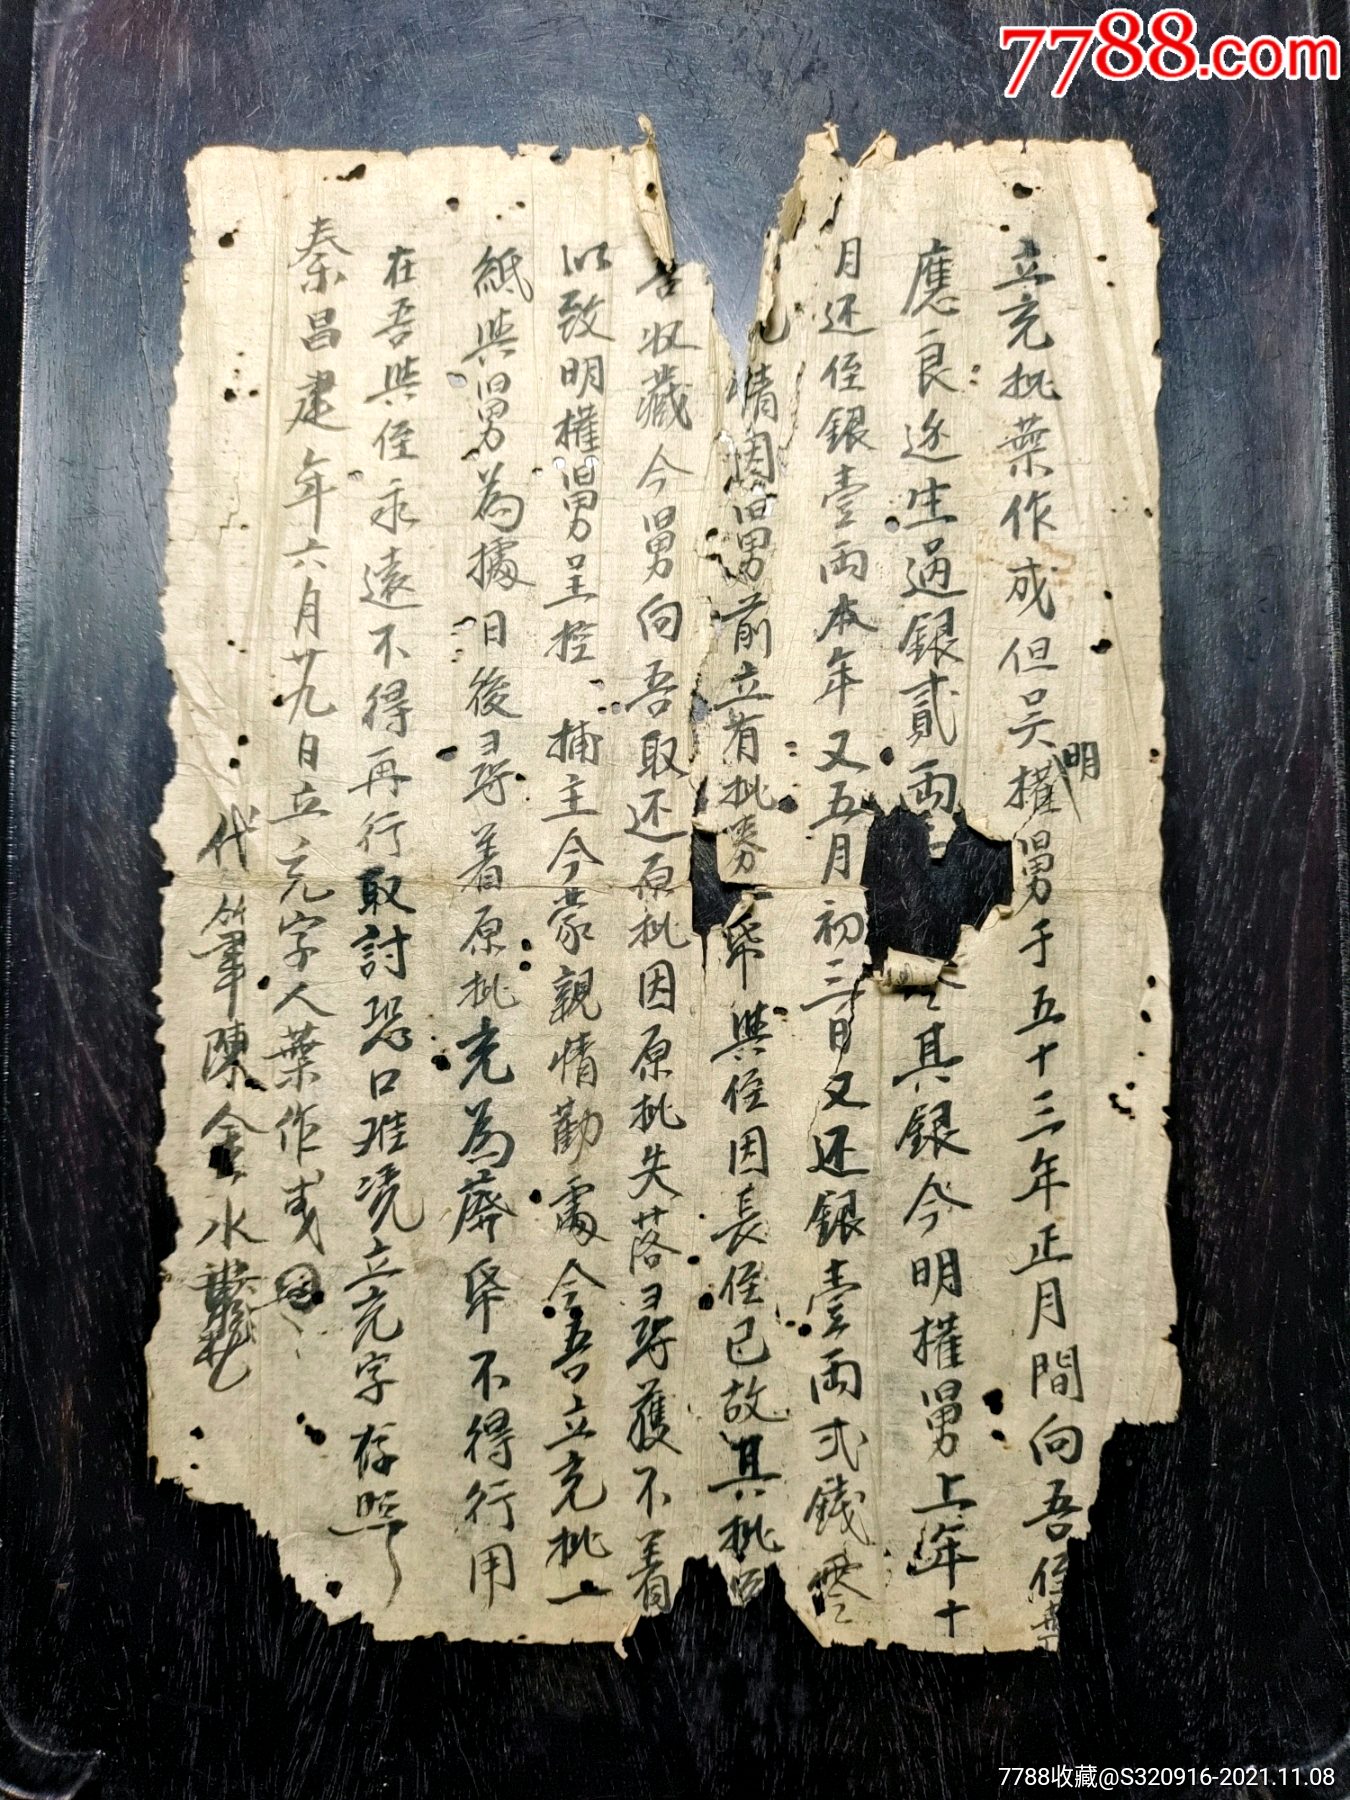 7788.com
立充批葉作成但吴明權舅于五十三年正月間向吾侄葉
應良迩生過銀貳兩其銀今明權舅上年十
月还侄銀壹兩本年又五月初三日又还銀壹兩弍錢零
情因舅前立有批劵一帋與侄因長侄已故其批
收藏今舅向吾取还原批因原批失落尋獲不着
以致明權舅呈控捕主今蒙親情勸處今吾立充批一
紙與舅為據日後尋着原批充為廢帋不得行用
在吾與侄永遠不得再行取討恐口难凴立充字存照
泰昌建年六月廿九日立充字人葉作成
代筆陳金水
7788收藏@S320916-2021.11.08